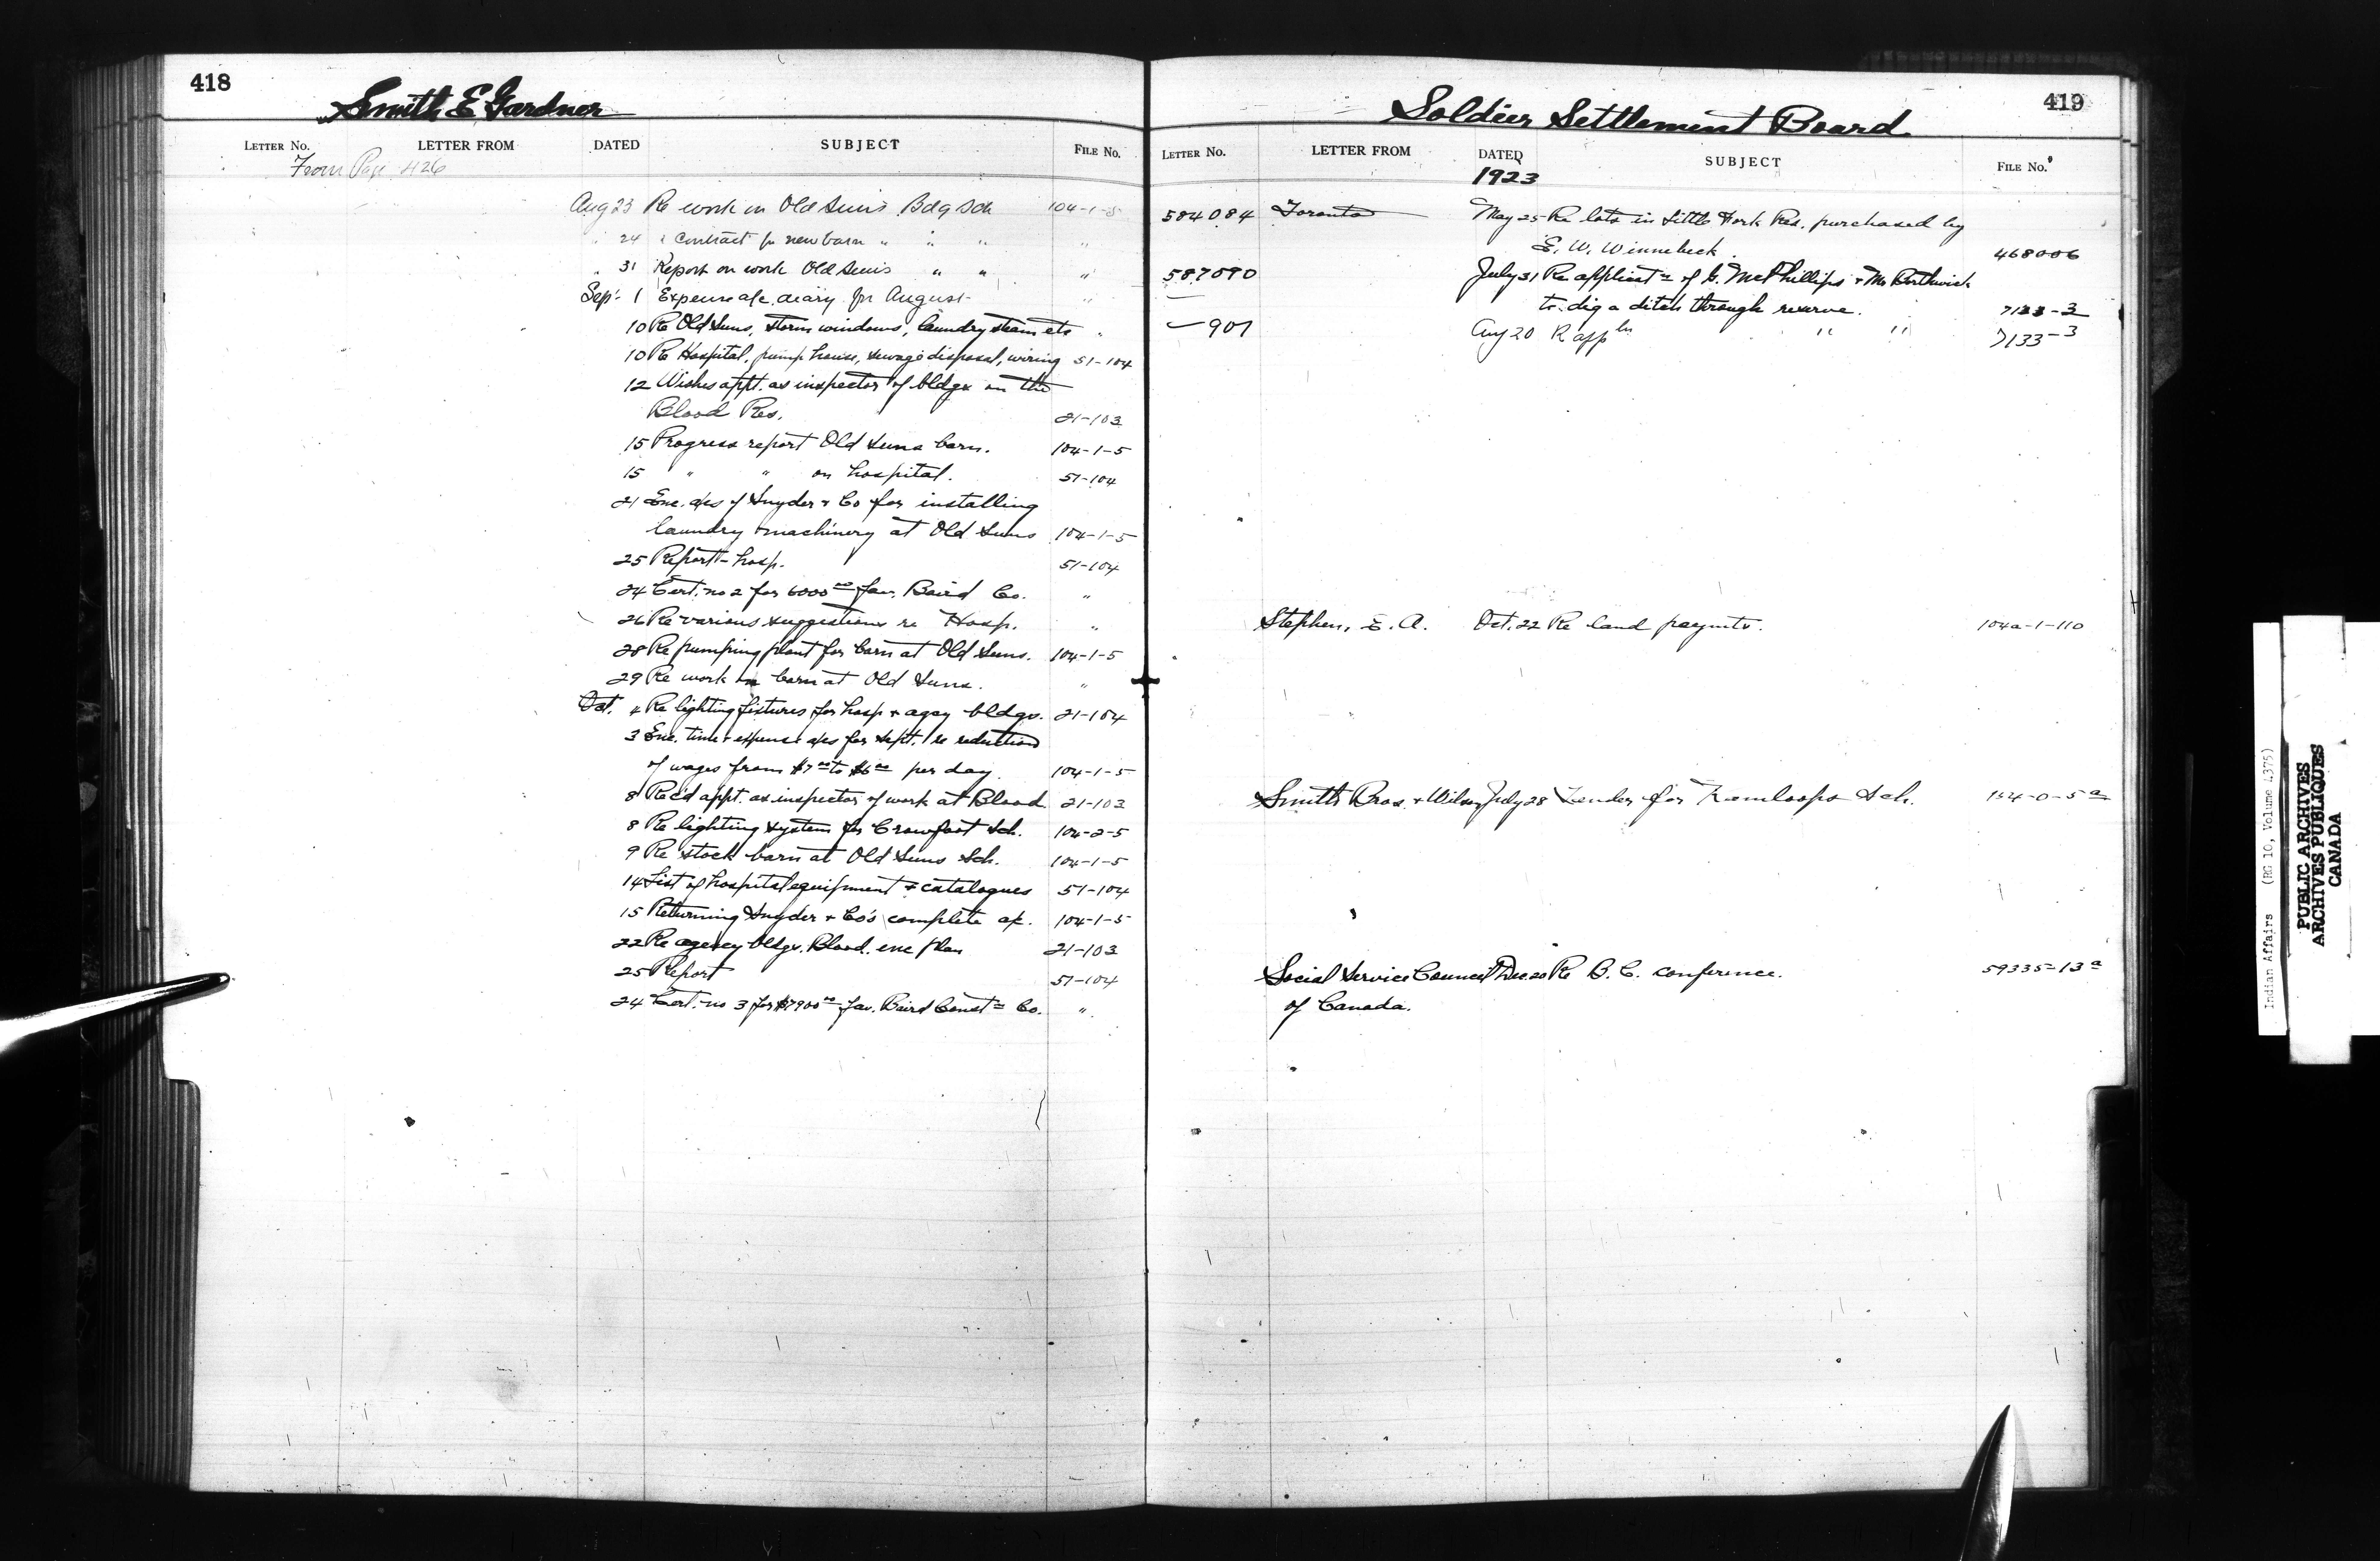 418
Smith E Gardner
LETTER NO. LETTER FROM DATED SUBJECT FILE NO.
From Page 426
Aug 23 Re work on Old Sun's Bdg Sch 104-1-5
" 24 " Contract for new barn " " " "
" 31 Report on work Old Sun's " " "
Sep. 1 Expense a/c diary for August "
10 Re Old Suns, storm windows, laundry steam etc "
10 Re Hospital, pump house, sewage disposal, wiring 51-104
12 Wishes appt. as inspector of bldgs on the
Blood Res. 21-103
15 Progress report Old Suns barn. 104-1-5
15 " " on hospital. 51-104
21 Enc. a/cs of Snyder & Co for installing
laundry machinery at Old Suns 104-1-5
25 Report - hosp. 51-104
24 Cert. no 2 for 6000 00 fav. Baird Co. "
26 Re various suggestions re Hosp. "
28 Re pumping plant for barn at Old Suns. 104-1-5
29 Re work on barn at Old Suns. "
Oct. 4 Re lighting fixtures for hosp & agcy bldgs. 21-104
3 Enc. time & expense a/cs for Sept. re reduction
of wages from $7 00 to $6 00 per day. 104-1-5
8 Rec'd appt. as inspector of work at Blood 21-103
8 Re lighting system for Crowfoot Sch. 104-2-5
9 Re stock barn at Old Suns Sch. 104-1-5
14 List of hospital equipment & catalogues 51-104
15 Returning Snyder & Co's complete a/c. 104-1-5
22 Re agency bldgs. Blood. enc plan 21-103
25 Report 51-104
24 Cert. no 3 for $7900 00 fav. Baird Const n Co. "
419
Soldier Settlement Board
LETTER NO. LETTER FROM DATED SUBJECT FILE NO.
1923
584084 Toronto May 25 Re lots in Little Fork Res. purchased by
E. W. Winnebeck. 468006
587090 July 31 Re applicat n of G. McPhillips & Mr Borthwick
to dig a ditch through reserve. 7133-3
907 Aug 20 R appln " " 7133-3
Stephen, E. A. Oct. 22 Re land paymts. 104a-1-110
Smith Bros. & Wilson July 28 Tender for Kamloops Sch. 154-0-5 a
Social Service Council Dec. 20 Re B. C. conference. 59335-13 a
of Canada.
Indian Affairs (RG 10, Volume 4375)
PUBLIC ARCHIVES
ARCHIVES PUBLIQUES
CANADA